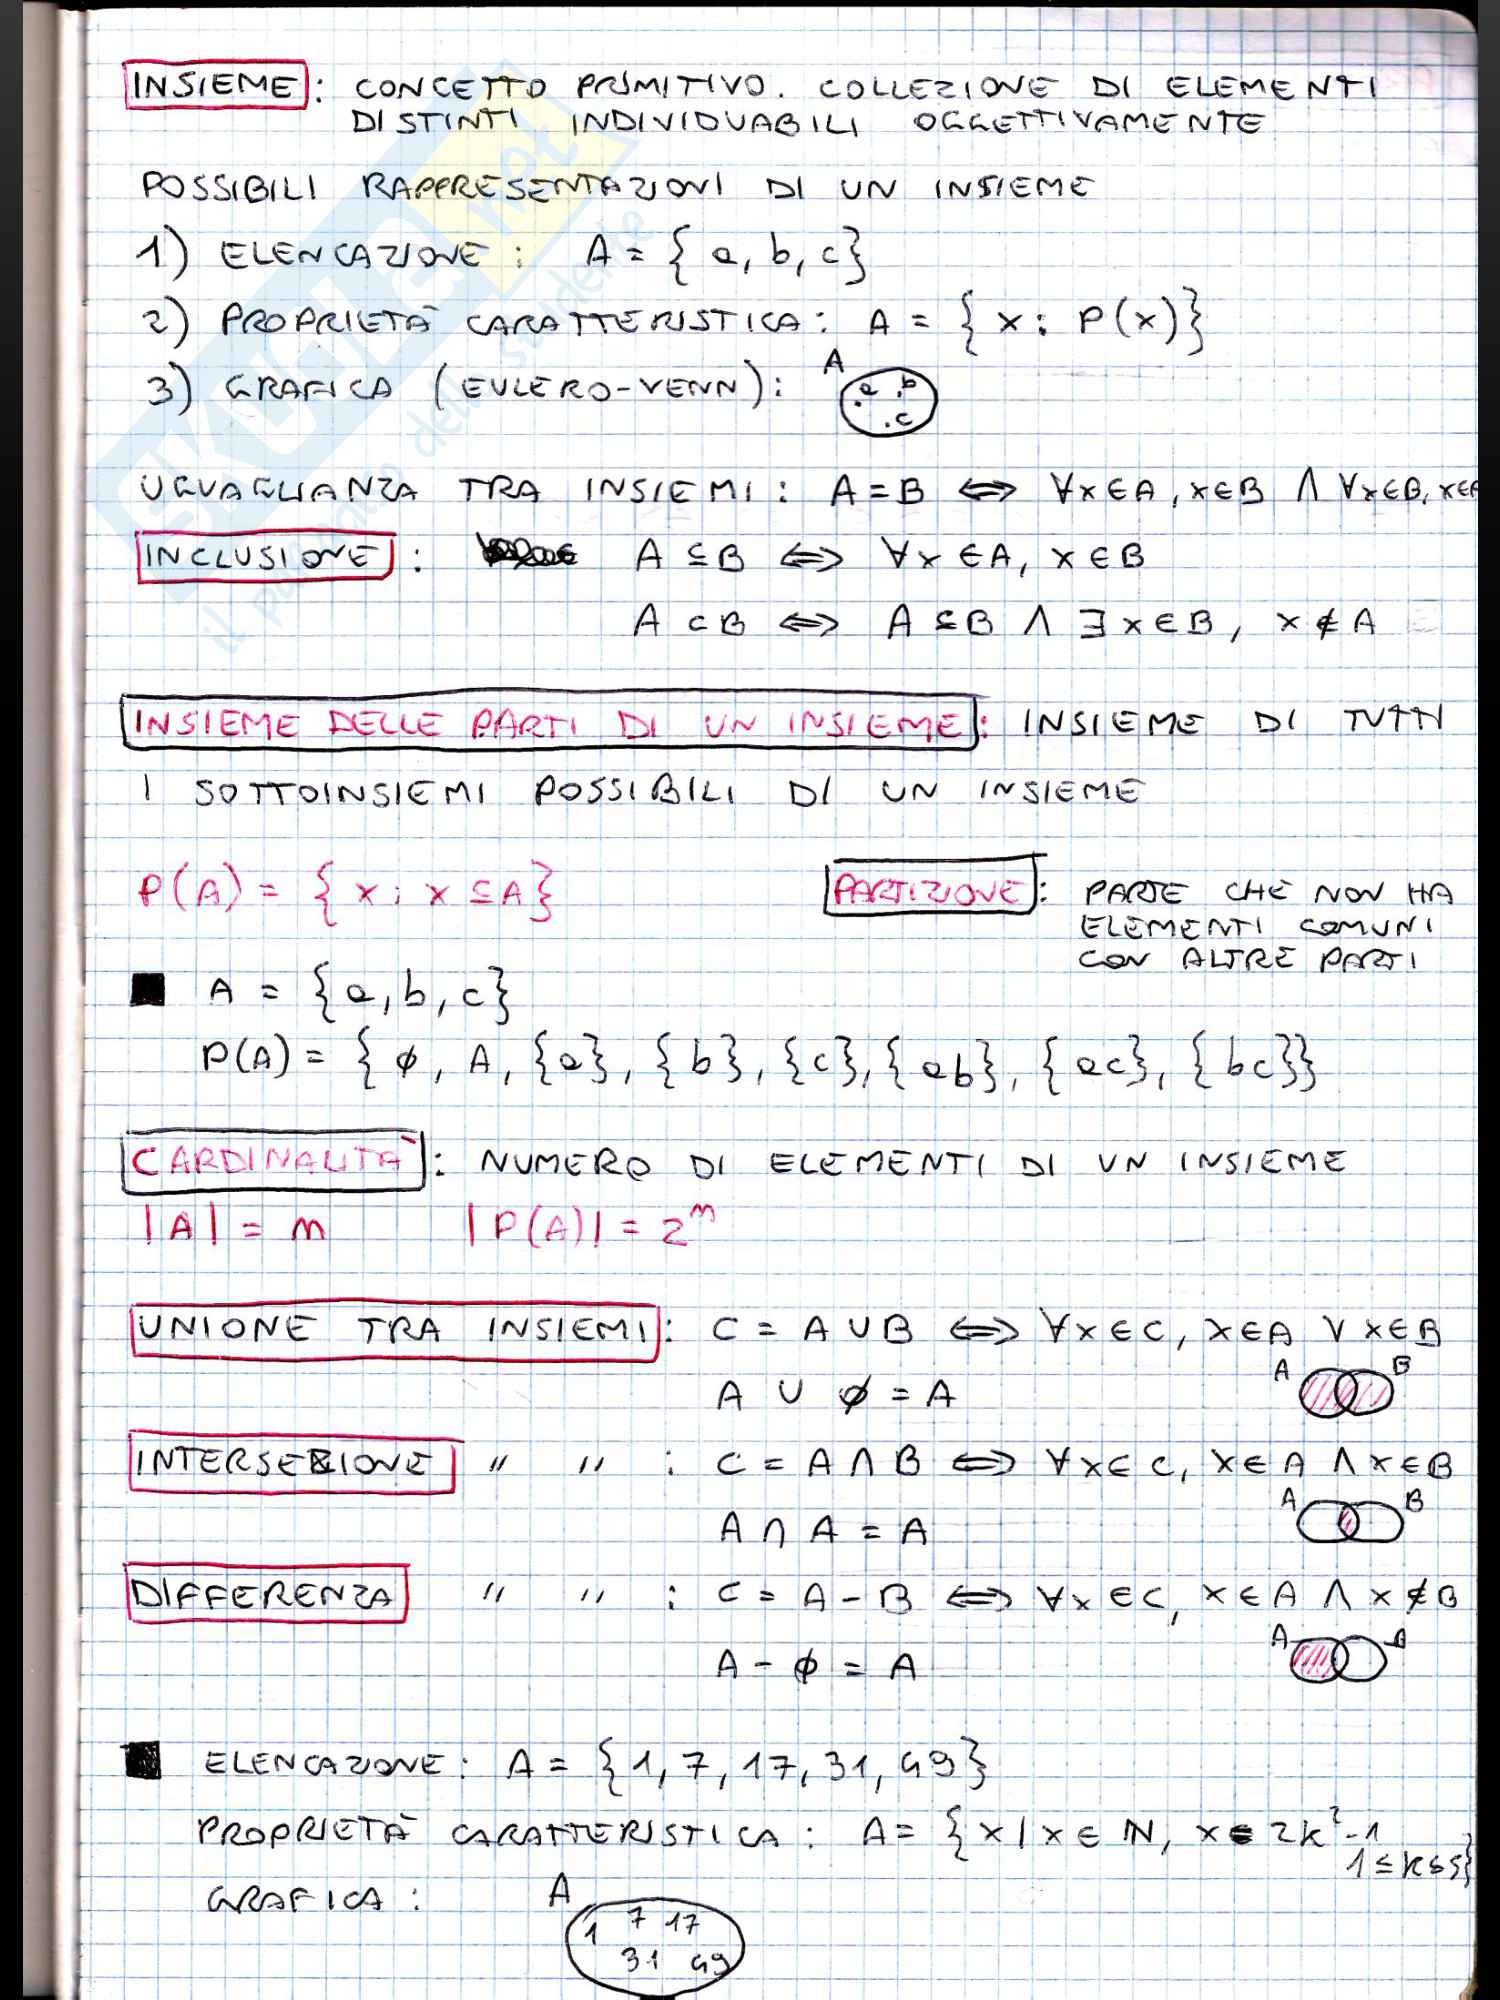 INSIEME: CONCETTO PRIMITIVO. COLLEZIONE DI ELEMENTI
DISTINTI INDIVIDUABILI OGGETTIVAMENTE
POSSIBILI RAPPRESENTAZIONI DI UN INSIEME
1) ELENCAZIONE: A = {a, b, c}
2) PROPRIETÀ CARATTERISTICA: A = {x: P(x)}
3) GRAFICA (EULERO-VENN): A a b c
UGUAGLIANZA TRA INSIEMI: A=B ⟺ ∀x∈A, x∈B ∧ ∀x∈B, x∈A
INCLUSIONE: A ⊆ B ⟺ ∀x ∈ A, x ∈ B
A ⊂ B ⟺ A ⊆ B ∧ ∃x∈B, x ∉ A
INSIEME DELLE PARTI DI UN INSIEME: INSIEME DI TUTTI
I SOTTOINSIEMI POSSIBILI DI UN INSIEME
P(A) = {x: x ⊆ A}
PARTIZIONE: PARTE CHE NON HA
ELEMENTI COMUNI
CON ALTRE PARTI
■ A = {a, b, c}
P(A) = {ϕ, A, {a}, {b}, {c}, {ab}, {ac}, {bc}}
CARDINALITÀ: NUMERO DI ELEMENTI DI UN INSIEME
|A| = m |P(A)| = 2^m
UNIONE TRA INSIEMI: C = A ∪ B ⟺ ∀x∈C, x∈A ∨ x∈B
A ∪ ϕ = A
A B
INTERSEZIONE " " : C = A ∩ B ⟺ ∀x∈C, x∈A ∧ x∈B
A ∩ A = A
A B
DIFFERENZA " " : C = A - B ⟺ ∀x∈C, x∈A ∧ x∉B
A - ϕ = A
A B
■ ELENCAZIONE: A = {1, 7, 17, 31, 49}
PROPRIETÀ CARATTERISTICA: A = {x | x ∈ ℕ, x = 2k²-1
1≤k≤5}
GRAFICA: A
1 7 17
31 49
SKUOLA.net
il paradiso dello studente